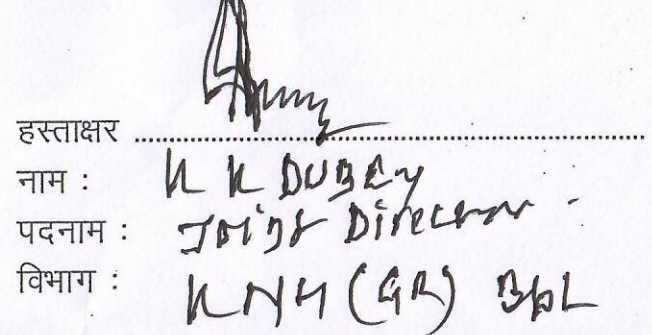 हस्ताक्षर
नाम : K K DUBEY
पदनाम : Joint Director
विभाग : KNH (GR) BPL